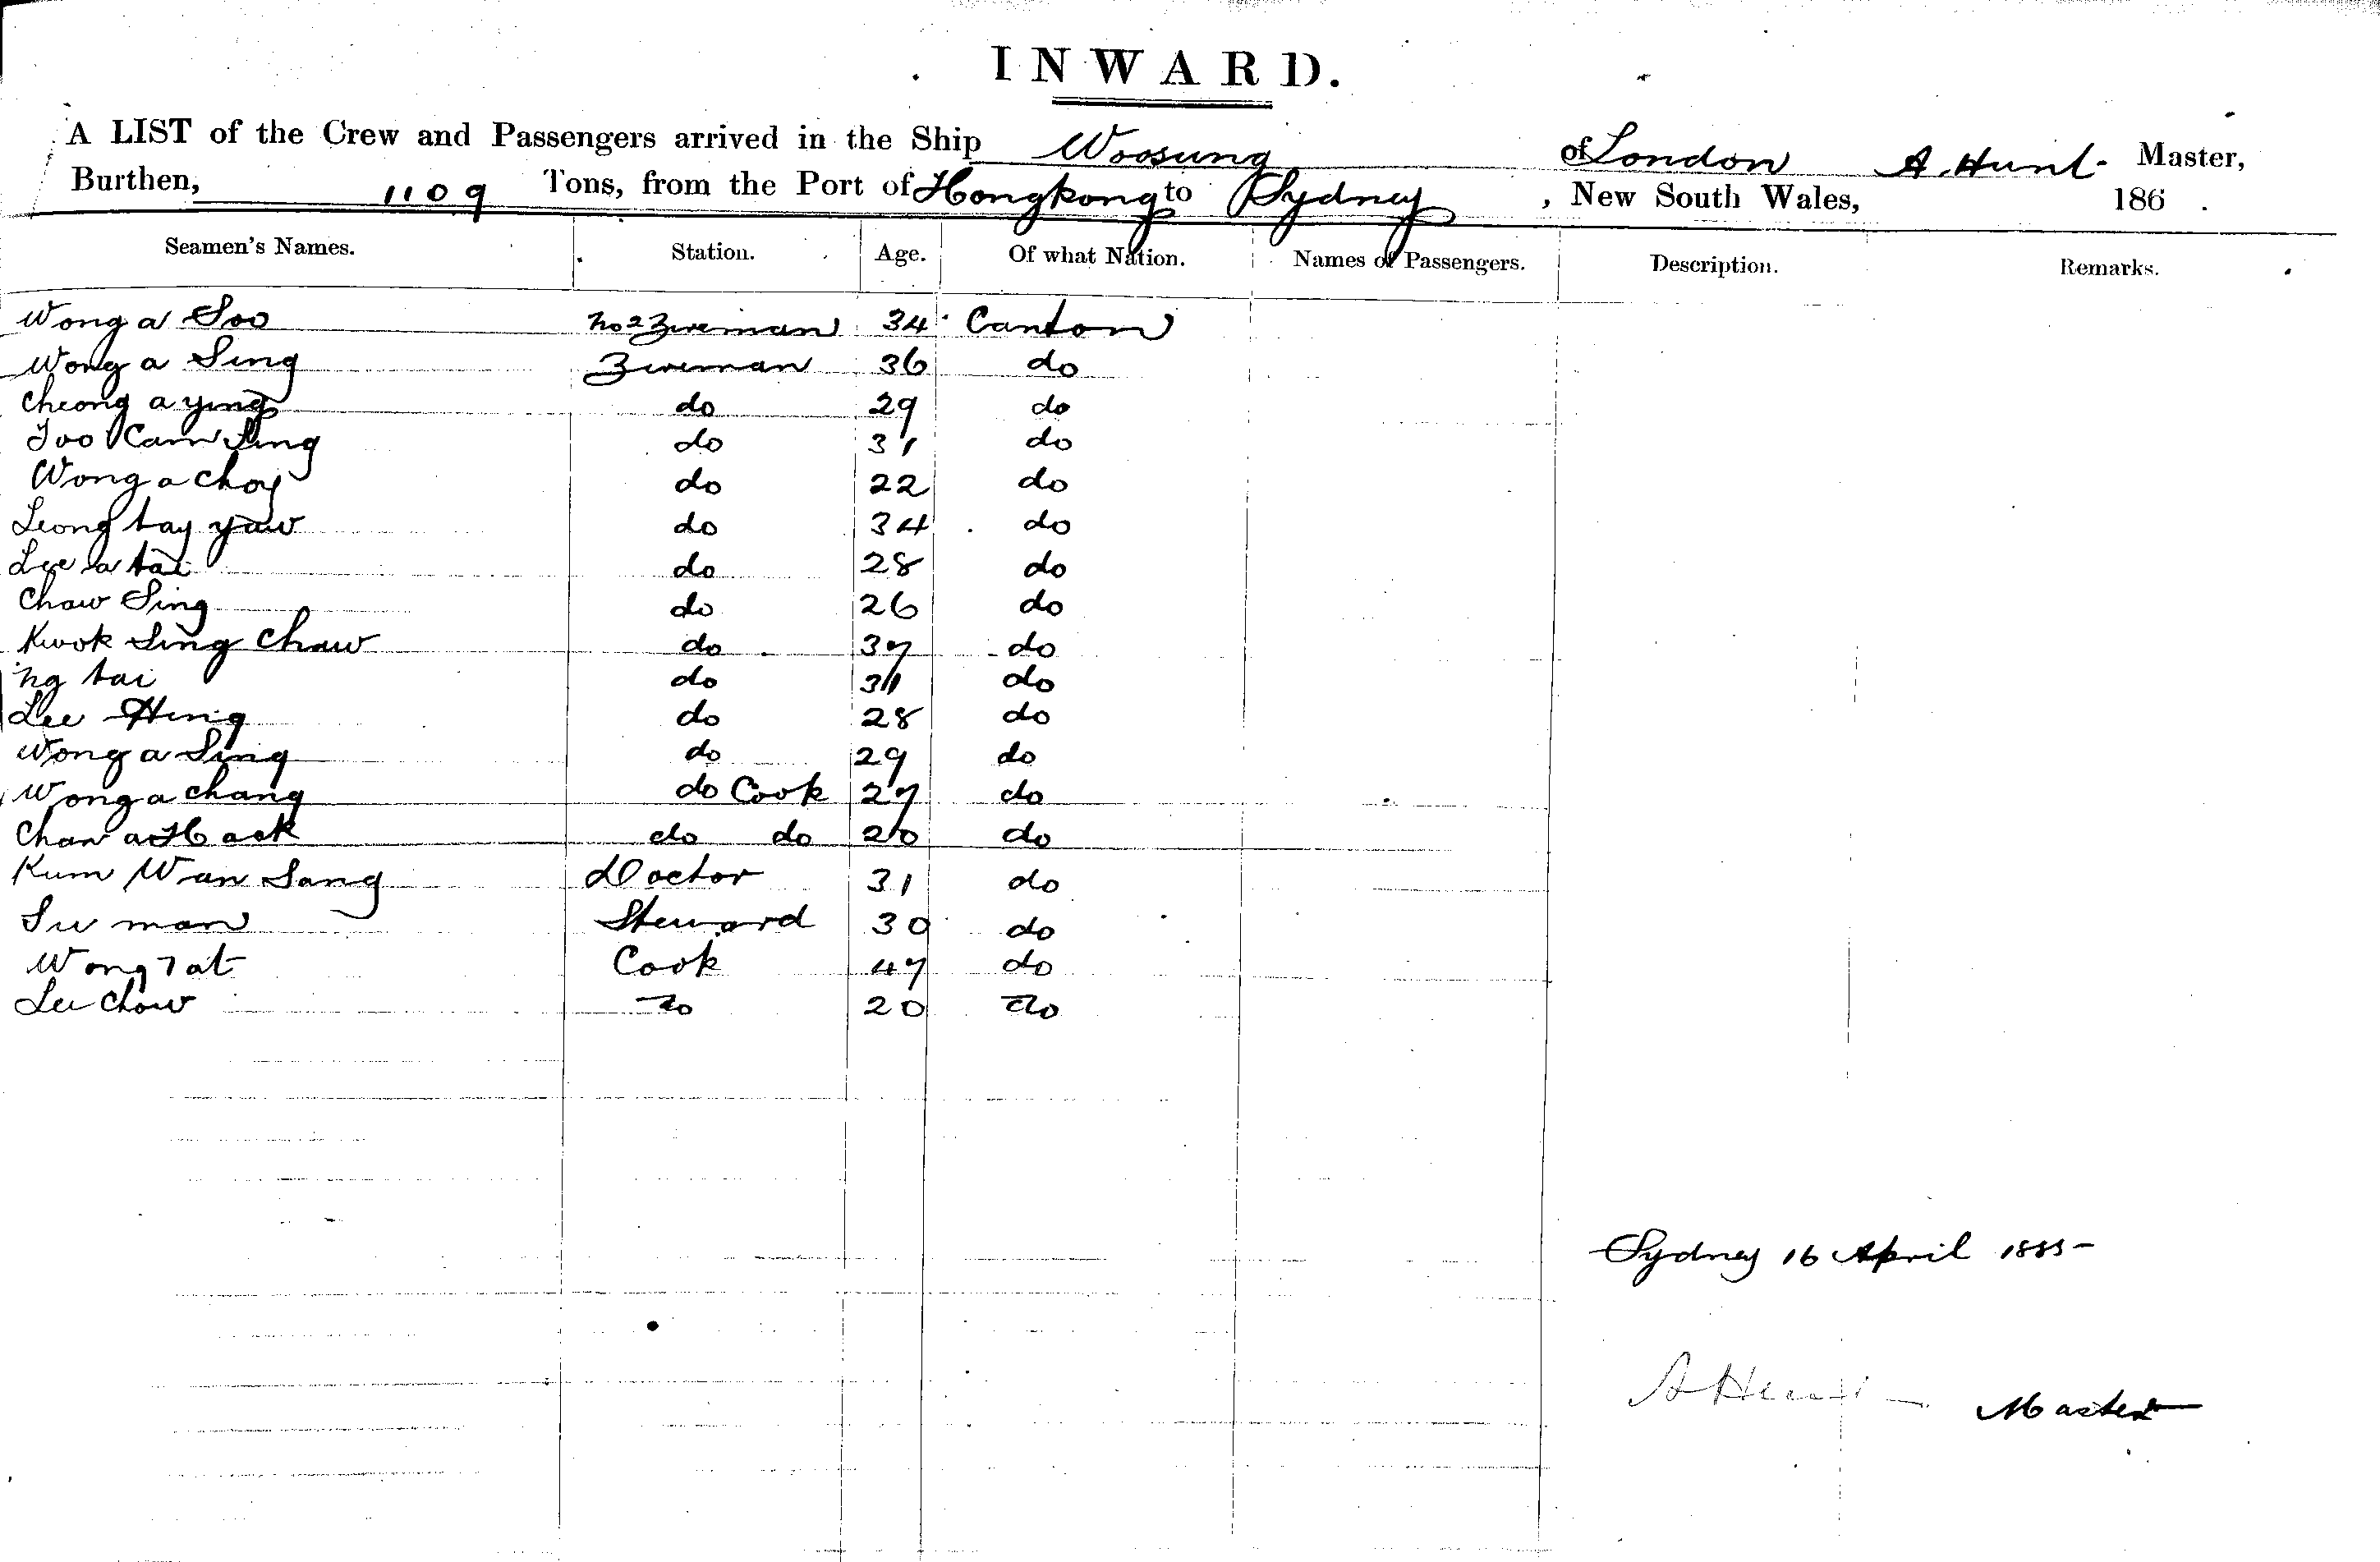 INWARD.
A LIST of the Crew and Passengers arrived in the Ship Woosung of London A. Hunt. Master,
Burthen, 1109 Tons, from the Port of Hongkong to Sydney, New South Wales, 186 .
Seamen's Names. Station. Age. Of what Nation. Names of Passengers. Description. Remarks.
Wong a Soo No 2 Fireman 34 Canton
Wong a Sing Fireman 36 do
Cheong a ying do 29 do
Foo Cam Sing do 31 do
Wong a Choy do 22 do
Leong tay yaw do 34 do
Lee a tai do 28 do
Chaw Sing do 26 do
Kwok Sing Chaw do 37 do
Ng tai do 31 do
Lee Hing do 28 do
Wong a Sing do 29 do
Wong a Chang do Cook 27 do
Chan a Hack do do 20 do
Kum Wan Sang Doctor 31 do
Su man Steward 30 do
Wong Tat Cook 47 do
Lee Chow do 20 do
Sydney 16 April
A Hunt Master